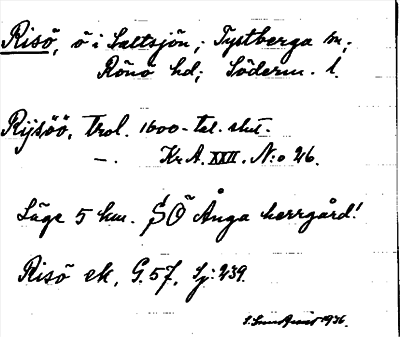 Risö, ö i Saltsjön; Tystberga sn;
Rönö hd; Söderm. l.
Rijsöö, trol. 1600-tal. slut.
—. Kr.A. XXII. N:o 26.
Läge 5 km. SÖ Ånga herrgård!
Risö ek. G. 57, Sj: 239.
1936.